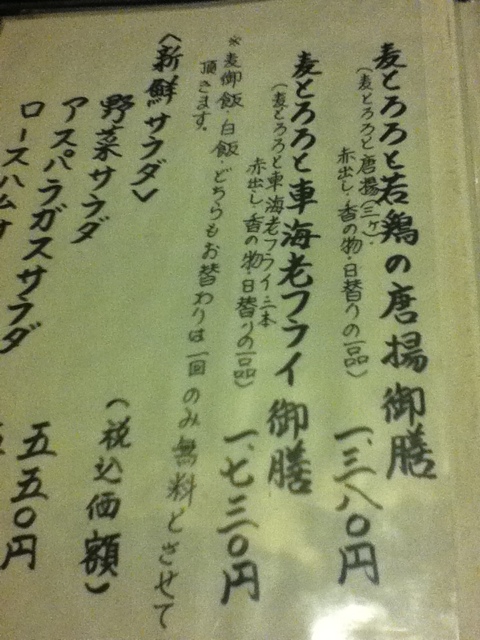 麦とろろと若鶏の唐揚御膳
(麦とろろと唐揚(三ヶ)・
赤出し・香の物・日替りの一品)
一、三八〇円
麦とろろと車海老フライ御膳
(麦とろろと車海老フライ三本
赤出し・香の物・日替りの一品)
一、七三〇円
※麦御飯・白飯・どちらもお替わりは一回のみ無料とさせて
頂きます。
〈新鮮サラダ〉
(税込価額)
野菜サラダ
アスパラガスサラダ
五五〇円
ロースハムサ